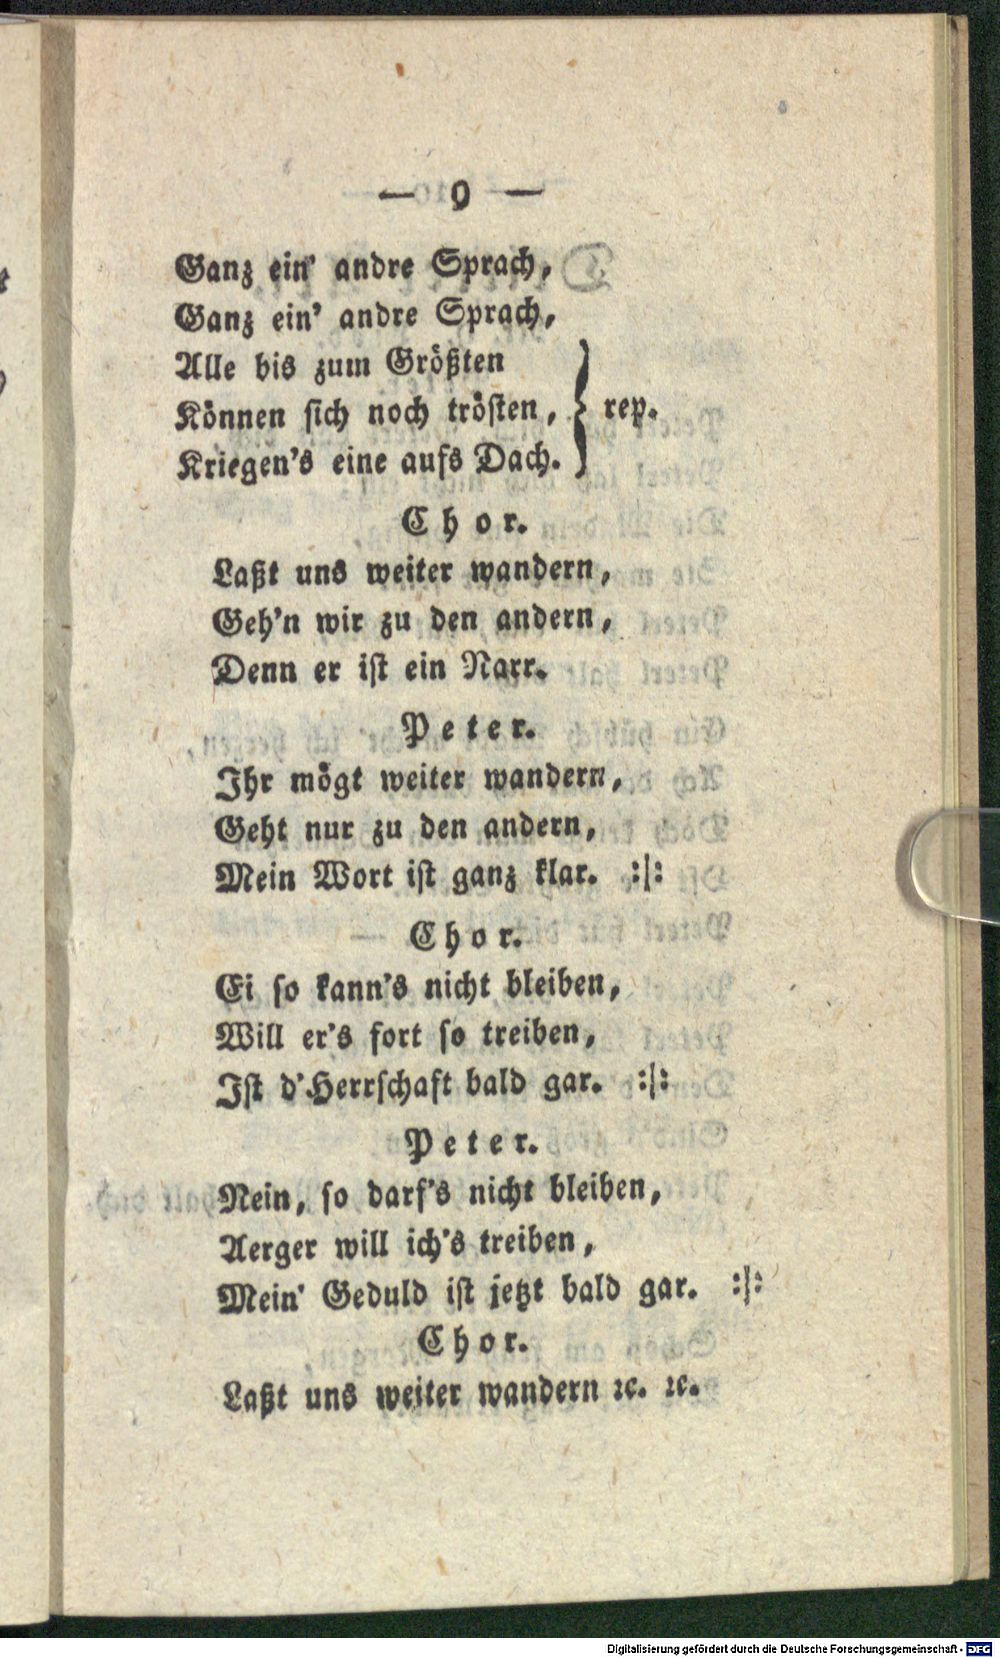 — 9 —
Ganz ein' andre Sprach,
Ganz ein' andre Sprach,
Alle bis zum Größten
Können sich noch trösten, } rep.
Kriegen's eine aufs Dach.
Chor.
Laßt uns weiter wandern,
Geh'n wir zu den andern,
Denn er ist ein Narr.
Peter.
Ihr mögt weiter wandern,
Geht nur zu den andern,
Mein Wort ist ganz klar. :|:
Chor.
Ei so kann's nicht bleiben,
Will er's fort so treiben,
Ist d'Herrschaft bald gar. :|:
Peter.
Nein, so darf's nicht bleiben,
Aerger will ich's treiben,
Mein' Geduld ist jetzt bald gar. :|:
Chor.
Laßt uns weiter wandern ꝛc. ꝛc.
Digitalisierung gefördert durch die Deutsche Forschungsgemeinschaft - DFG